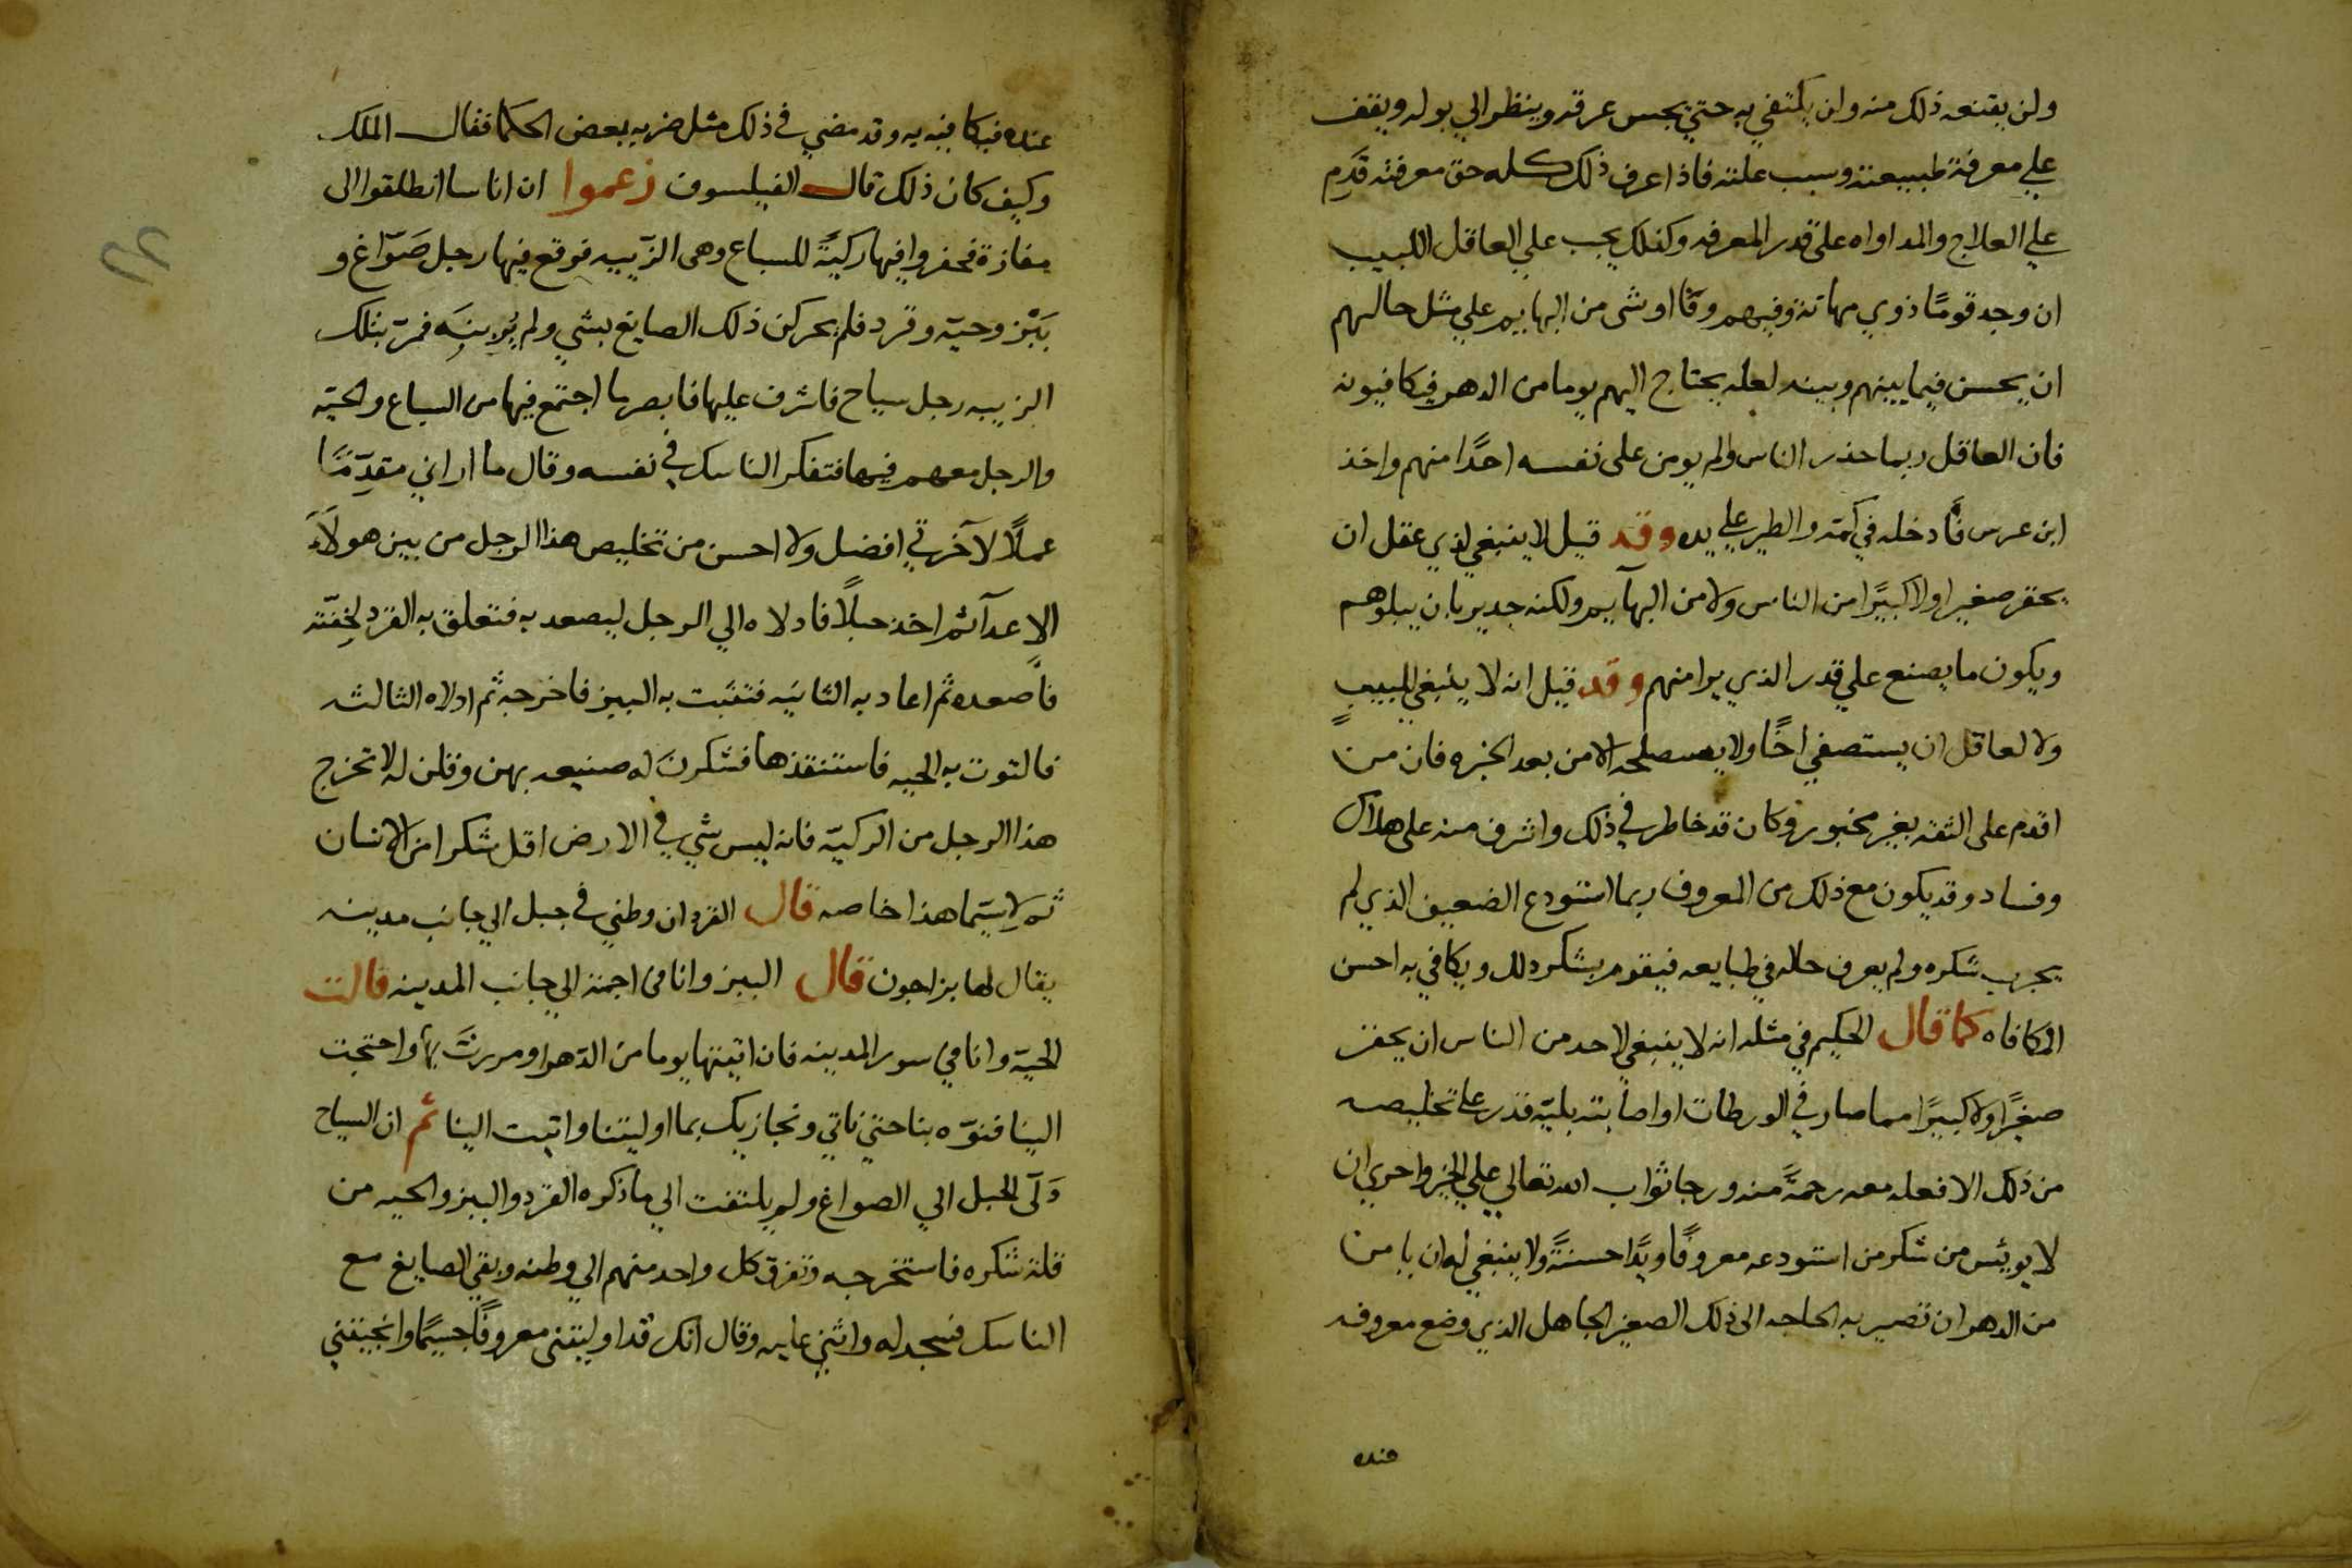 ولن يقنعه ذلك منه ولن يكتفي به حتي يجس عرقه وينظر الي بوله ويقف
علي معرفة طبيعته وسبب علته فاذا عرف ذلك كله حق معرفته قدم
علي العلاج والمداواه على قدر المعرفه وكذلك يجب علي العاقل اللبيب
ان وجد قومًا ذوي مهانة وفيهم وفًا اوشى من البهايم علي مثل حالهم
ان يحسن فيما بينهم وبينه لعله يحتاج اليهم يوما من الدهر فيكافيونه
فان العاقل ربما حذر الناس ولم يومن على نفسه احدًا منهم واخذ
ابن عرس فأدخله في كمه والطير علي يده وقد قيل لا ينبغي لذي عقل ان
يحقر صغيرا ولا كبيرًا من الناس ولا من البهآيم ولكنه جدير بان يبلوهم
ويكون ما يصنع علي قدر الذي يرا منهم وقد قيل انه لا ينبغي للبيب
ولا لعاقل ان يستصفي اخًا ولا يصلحه الا من بعد الخبره فان من
اقدم على الثقه بغير مخبور وكان قد خاطر في ذلك واشرف منه على هلاك
وفساد وقد يكون مع ذلك من المعروف ربما استودع الضعيف الذي لم
يجرب شكره ولم يعرف حاله في طبايعه فيقوم بشكر ذلك ويكافي به احسن
المكافاه كما قال الحكيم في مثله انه لا ينبغي لاحد من الناس ان يحقر
صغيرًا ولا كبيرًا مما صار في الورطات او اصابته بليّه قدر علي تخليصه
من ذلك الا فعله معه رحمةً منه ورجا ثواب الله تعالي علي الخير واحري ان
لا يويئس من شكر من استودعه معروفًا ويدًا حسنةً ولا ينبغي له ان يامن
من الدهر ان تصير به الحاجه الى ذلك الصغير الجاهل الذي وضع معروفه
عنده
عنده فيكافييه به وقد مضي في ذلك مثل ضربه بعض الحكما فقال الملك
وكيف كان ذلك قال الفيلسوف زعموا ان اناسا انطلقوا الى
مفازة فحفروا فيها ركيةً للسباع وهى الزّبيه فوقع فيها رجل صَوّاغ و
بَبْز وحيّه وقرد فلم يحركن ذلك الصايغ بشي ولم يُوِينه فمرّ بتلك
الزبيه رجل سياح فاشرف عليها فابصر ما اجتمع فيها من السباع والحيّه
والرجل معهم فيها فتفكر الناسك في نفسه وقال ما اراني متقدّمًا
عملاً لآخرتي افضل ولا احسن من تخليص هذا الرجل من بين هولآء
الاعدآ ثم اخذ حبلاً فادلاه الي الرجل ليصعد به فتعلق به القرد لخفّته
فأصعده ثم اعاد به الثانيه فتثبت به الببز فاخرجه ثم ادلاه الثالثه
فالتوت به الحيه فاستنقذها فشكرن له صنيعه بهن وقلن له لا تخرج
هذا الرجل من الركيّه فانه ليس شي في الارض اقل شكرا من الانسان
ثم لا سيّما هذا خاصه قال القرد ان وطني في جبل الي جانب مدينه
يقال لها بزاجون قال الببز وانا في اجمة الي جانب المدينه قالت
الحيّة وانا في سور المدينه فان اتيتها يوما من الدّهر او مررت بها واحتجت
الينا فنوّه بنا حتي ناتي ونجازيك بما اوليتنا واتيت الينا ثم ان السياح
دَلّى الحبل الي الصواغ ولم يلتفت الي ما ذكره القرد والببز والحيه من
قلة شكره فاستخرجه وتفرق كل واحد منهم الي وطنه وبقي الصايغ مع
الناسك فسجد له واثني عليه وقال انك قد اوليتنى معروفًا جسيمًا وانجيتني